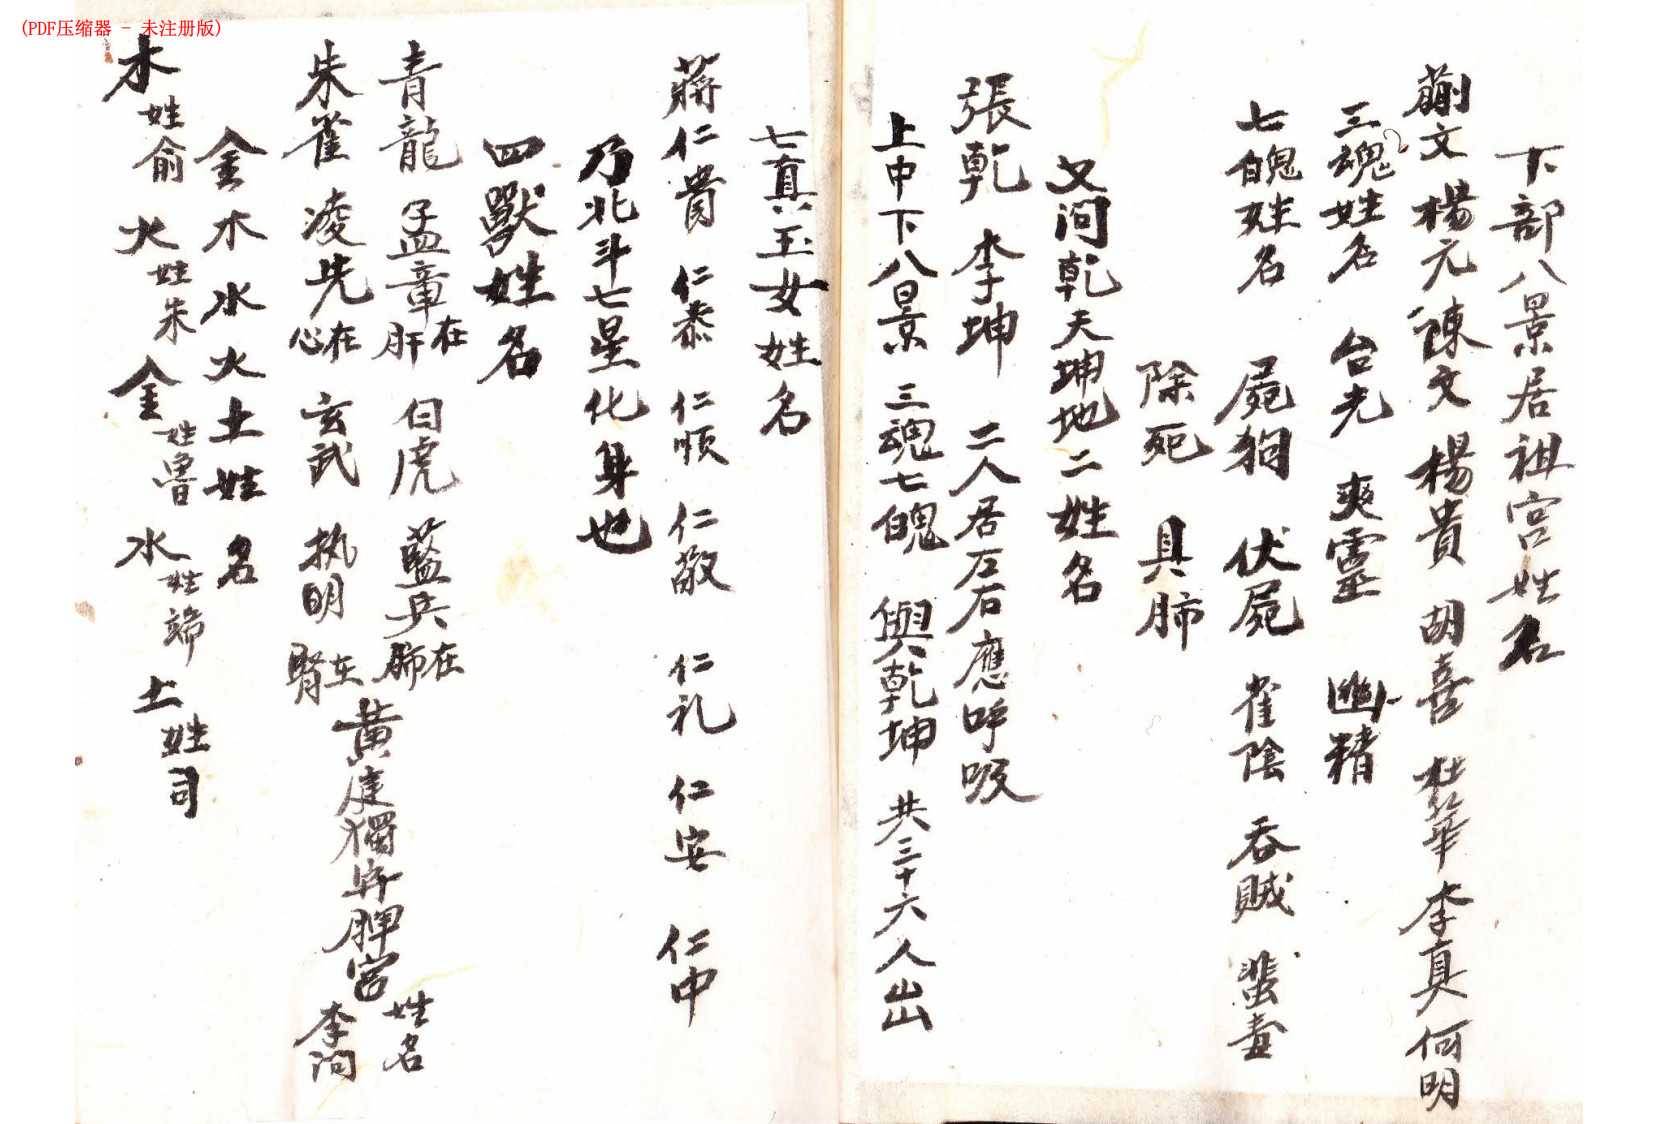 (PDF压缩器 - 未注册版)
下部八景居祖宫姓名
蒯文 楊元 陳文 楊貴 胡喜 杜華 李真 何明
三魂姓名 台光 爽靈 幽精
七魄姓名 屍狗 伏屍 雀陰 吞賊 蜚毒
除死 具肺
又问乾天坤地二姓名
張乾 李坤 二人居左右應呼吸
上中下八景 三魂七魄 與乾坤 共三十六人出
七真玉女姓名
蔣仁貴 仁泰 仁順 仁敬 仁礼 仁安 仁中
乃北斗七星化身也
四獸姓名
青龍 孟章在肝 白虎 藍兵在肺
朱雀 凌光在心 玄武 执明在腎
黄庭獨守脾宫姓名李问
金木水火土姓名
木姓俞 火姓朱 金姓魯 水姓端 土姓司